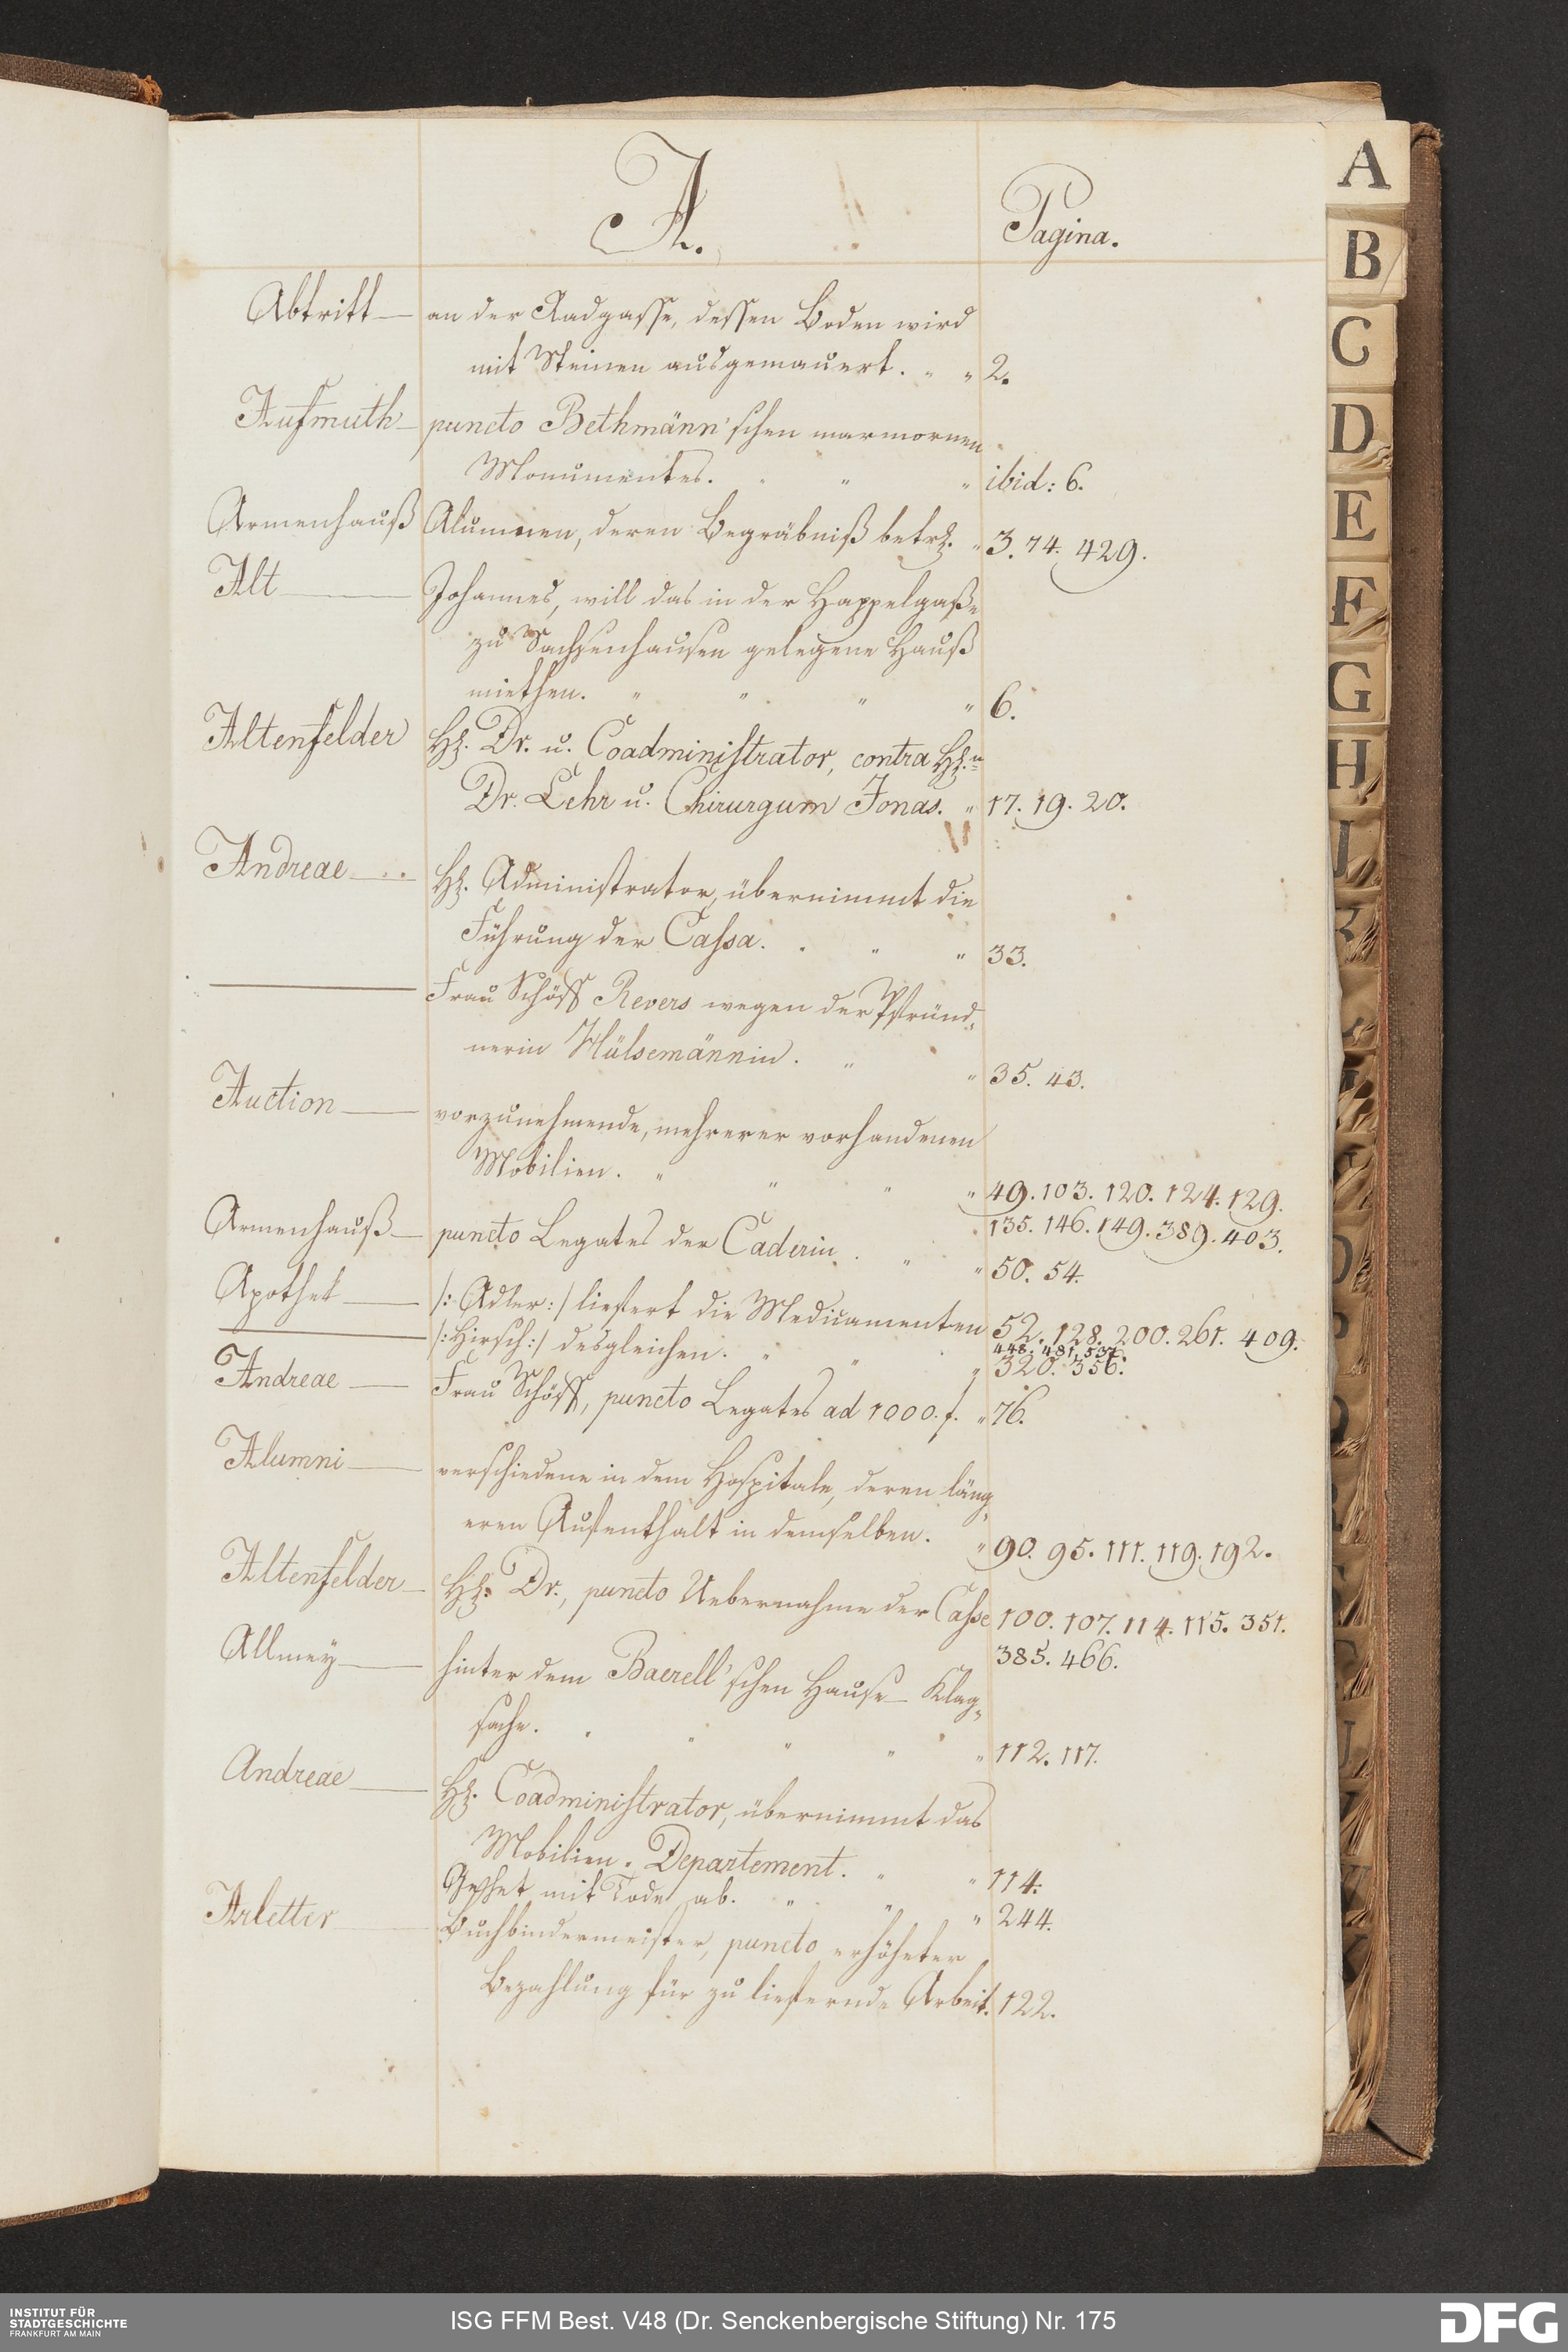 A.
Pagina.
Abtritt — an der Radgasse, dessen Boden wird
mit Steinen ausgemauert. " " 2.
Aufmuth — puncto Bethmänn'schen marmornen
Monumentes. " " " ibid: 6.
Armenhauß Alumnen, deren Begräbniß betr. " 3. 74. 429.
Alt — Johannes, will das in der Happelgaße
zu Sachsenhausen gelegene Hauß
miethen. " " " " 6.
Altenfelder H. Dr. u. Coadministrator, contra H.n
Dr. Lehr u. Chirurgum Jonas. " 17. 19. 20.
Andreae — H. Administrator, übernimmt die
Führung der Cassa. " " " 33.
— Frau Schöff Revers wegen der Pfründ„
nerin Hülsemännin. " " 35. 43.
Auction — vorzunehmende, mehrerer vorhandenen
Mobilien. " " " " 49. 103. 120. 124. 129.
135. 146. 149. 389. 403.
Armenhauß — puncto Legates der Caderin. " " 50. 54.
Apothek — /: Adler :/ liefert die Medicamenten 52. 128. 200. 261. 409.
448. 481. 537.
— /: Hirsch :/ desgleichen. " " " 320. 356.
Andreae — Frau Schöff, puncto Legates ad 1000. f. " 76.
Alumni — verschiedene in dem Hospitale, deren läng„
eren Aufenthalt in demselben. " 90. 95. 111. 119. 192.
Altenfelder — H. Dr., puncto Uebernahme der Casse 100. 107. 114. 115. 351.
385. 466.
Allmey — hinter dem Baerell'schen Hause — Klag„
sache. " " " " " 112. 117.
Andreae — H. Coadministrator, übernimmt das
Mobilien-Departement. " " 114.
Gehet mit Tode ab. " " " 244.
Arletter — Buchbindermeister, puncto erhöheter
Bezahlung für zu liefernde Arbeit. 122.
A
B
C
D
E
F
G
H
J
INSTITUT FÜR
STADTGESCHICHTE
FRANKFURT AM MAIN
ISG FFM Best. V48 (Dr. Senckenbergische Stiftung) Nr. 175
DFG